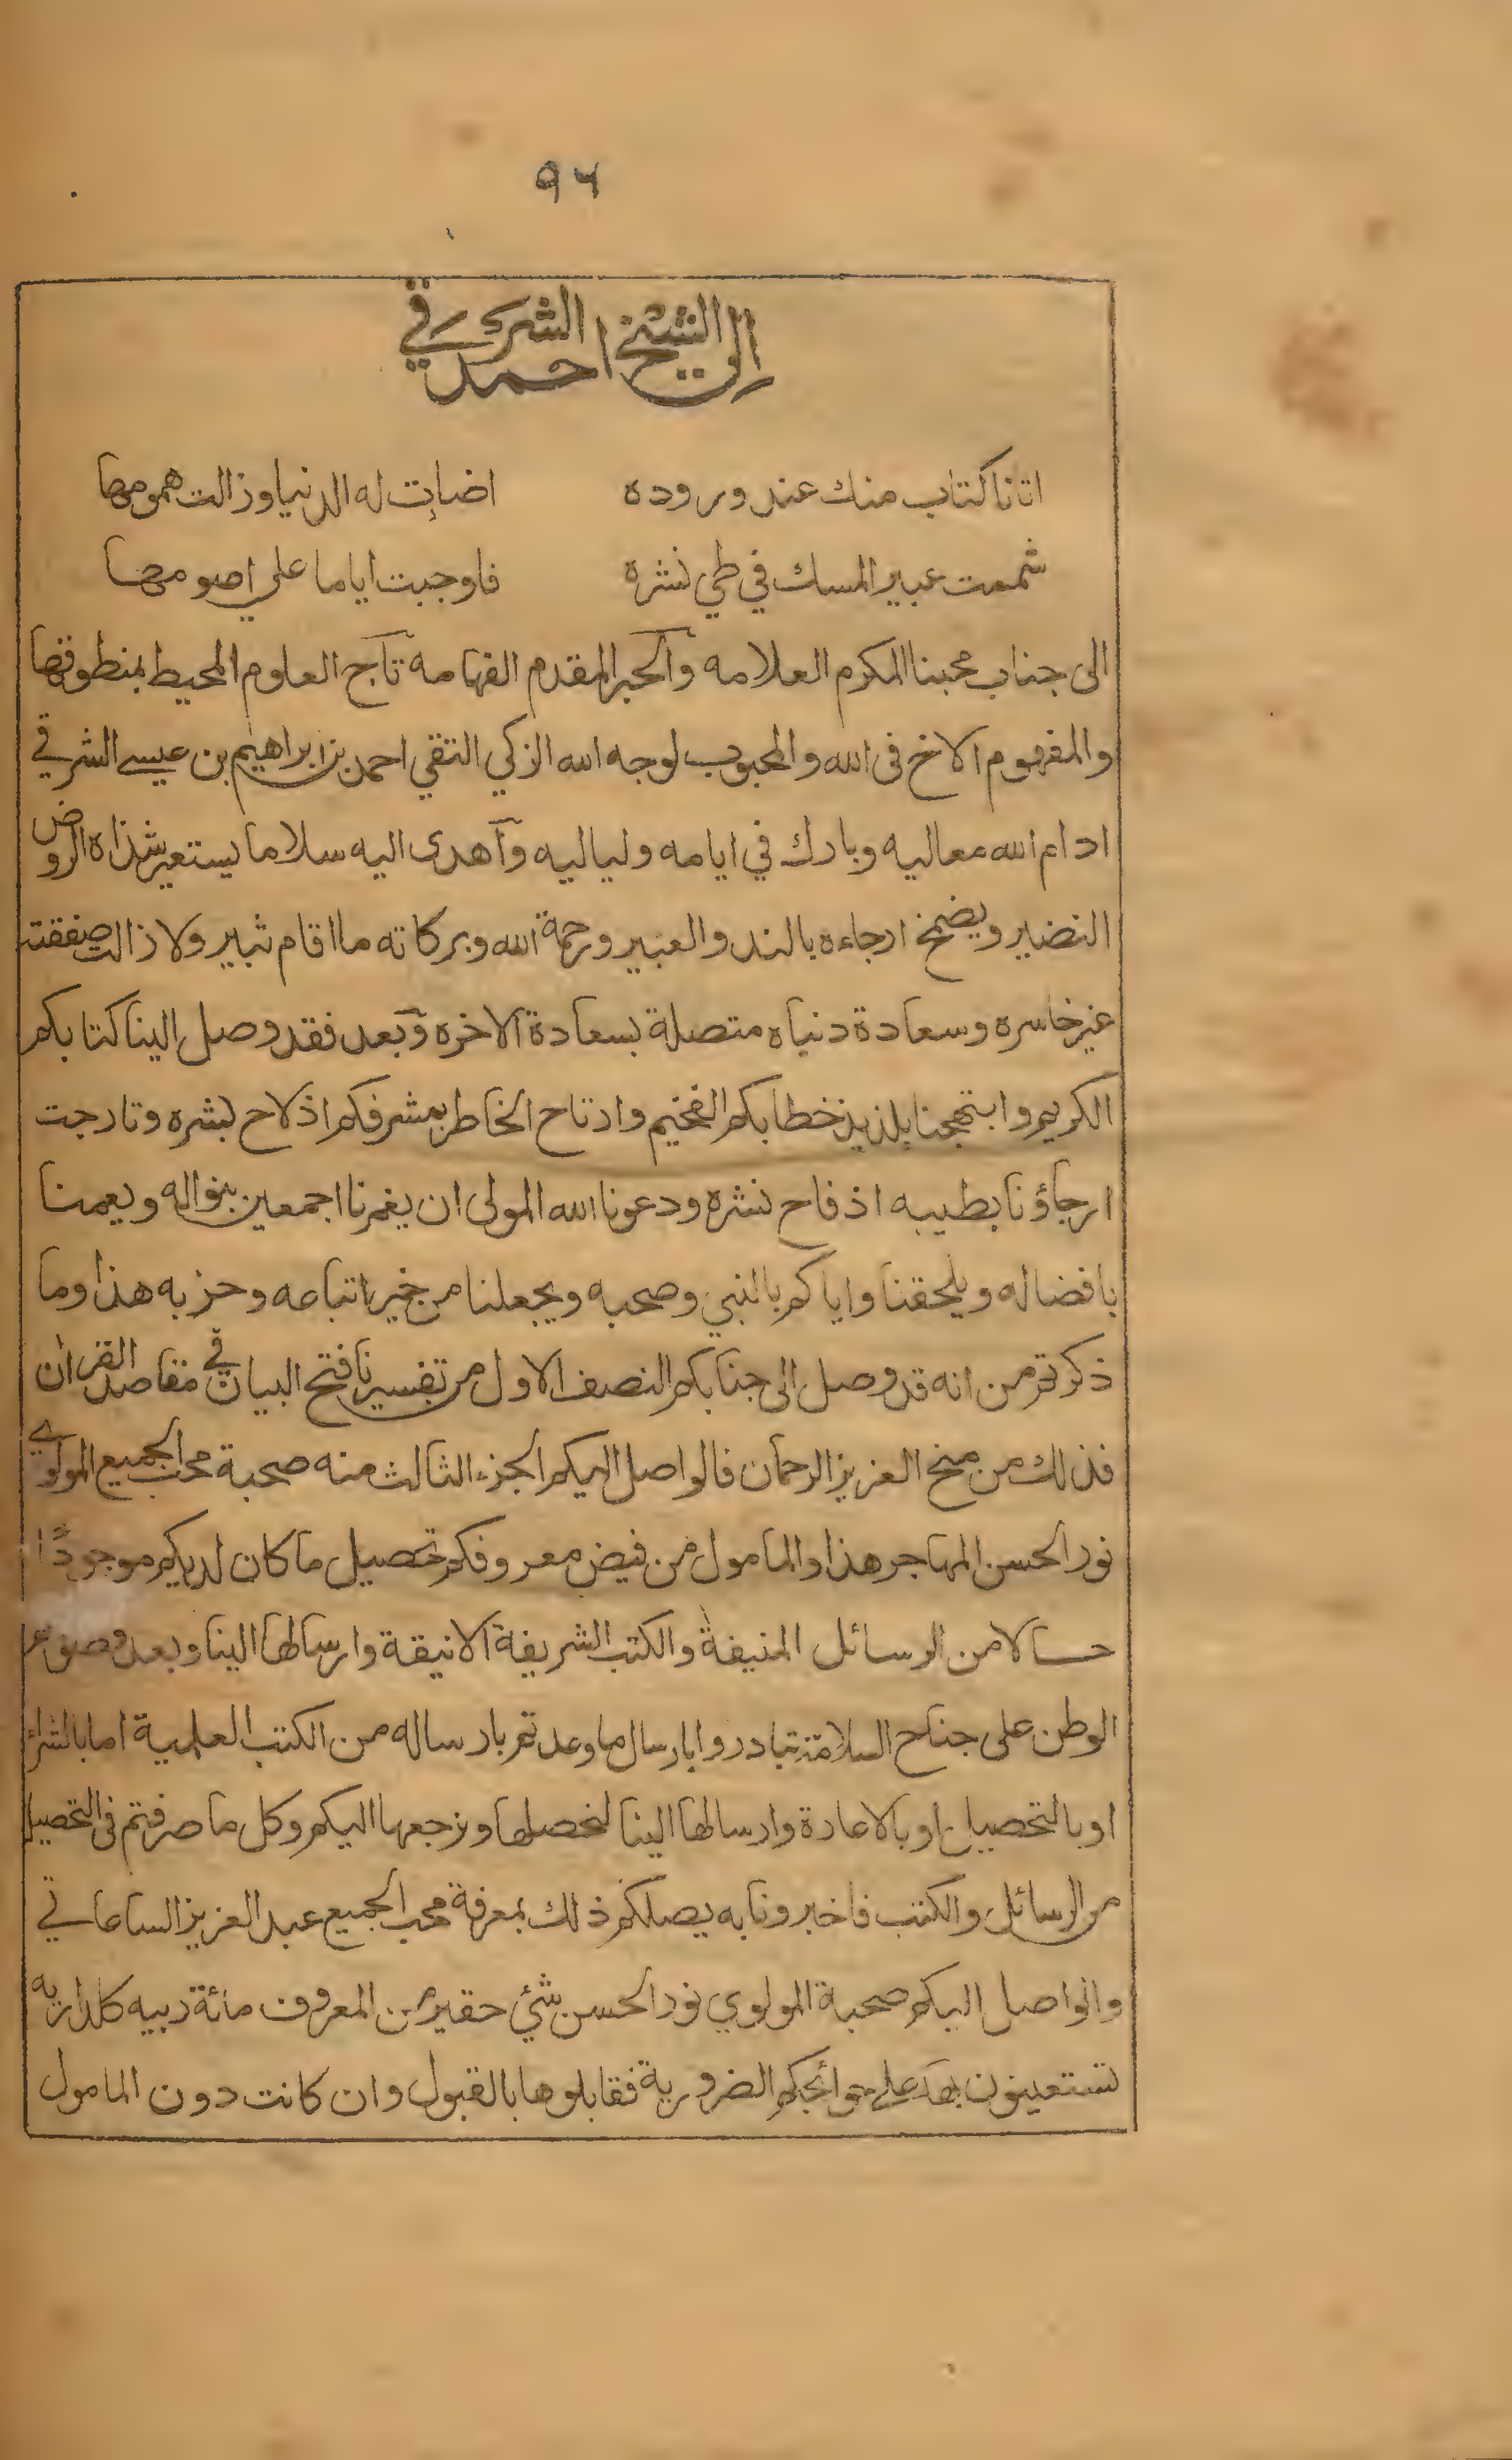 ٩٦
الى الشيخ احمد الشرقي
اتانا كتاب منك عند وروده اضاءت له الدنيا وزالت همومها
شممت عبير المسك في طي نشره فاوجبت اياما علي اصومها
الى جناب محبنا المكرم العلامه والحبر المقدم الفهامه تاج العلوم المحيط بمنطوقها
والمفهوم الاخ فى الله والمحبوب لوجه الله الزكي التقي احمد بن ابراهيم بن عيسى الشرقي
ادام الله معاليه وبارك في ايامه ولياليه وآهدى اليه سلاما يستعير شذاه الروض
النضير ويضمخ ارجاءه بالند والعبير ورحمة الله وبركاته ما اقام ثبير ولا زالت صفقته
غير خاسره وسعادة دنياه متصلة بسعادة الاخره وبعد فقد وصل الينا كتابكم
الكريم وابتهجنا بلذيذ خطابكم الفخيم وارتاح الخاطر بمشرفكم اذ لاح بشره وتارجت
ارجاؤنا بطيبه اذ فاح نشره ودعونا الله المولى ان يغمرنا اجمعين بنواله ويعمنا
بافضاله ويلحقنا واياكم بالنبي وصحبه ويجعلنا من خير اتباعه وحزبه هذا وما
ذكرتم من انه قد وصل الى جنابكم النصف الاول من تفسيرنا فتح البيان في مقاصد القران
فذلك من منح العزيز الرحمان فالواصل اليكم الجزء الثالث منه صحبة محب الجميع المولوي
نور الحسن المهاجر هذا والمامول من فيض معروفكم تحصيل ما كان لديكم موجودًا
حالا من الرسائل المنيفة والكتب الشريفة الانيقة وارسالها الينا وبعد
الوطن على جناح السلامة تبادروا بارسال ما وعدتم بارساله من الكتب العلمية اما بالشراء
او بالتحصيل او بالاعادة وارسالها الينا لنحصلها ونرجعها اليكم وكل ما صرفتم فى التحصيل
من الرسائل والكتب فاخبرونا به يصلكم ذلك بمعرفة محب الجميع عبد العزيز الساعاتي
والواصل اليكم صحبة المولوي نور الحسن شئ حقير من المعروف مائة ربيه كلداريه
تستعينون بها على حوائجكم الضرورية فقابلوها بالقبول وان كانت دون المامول